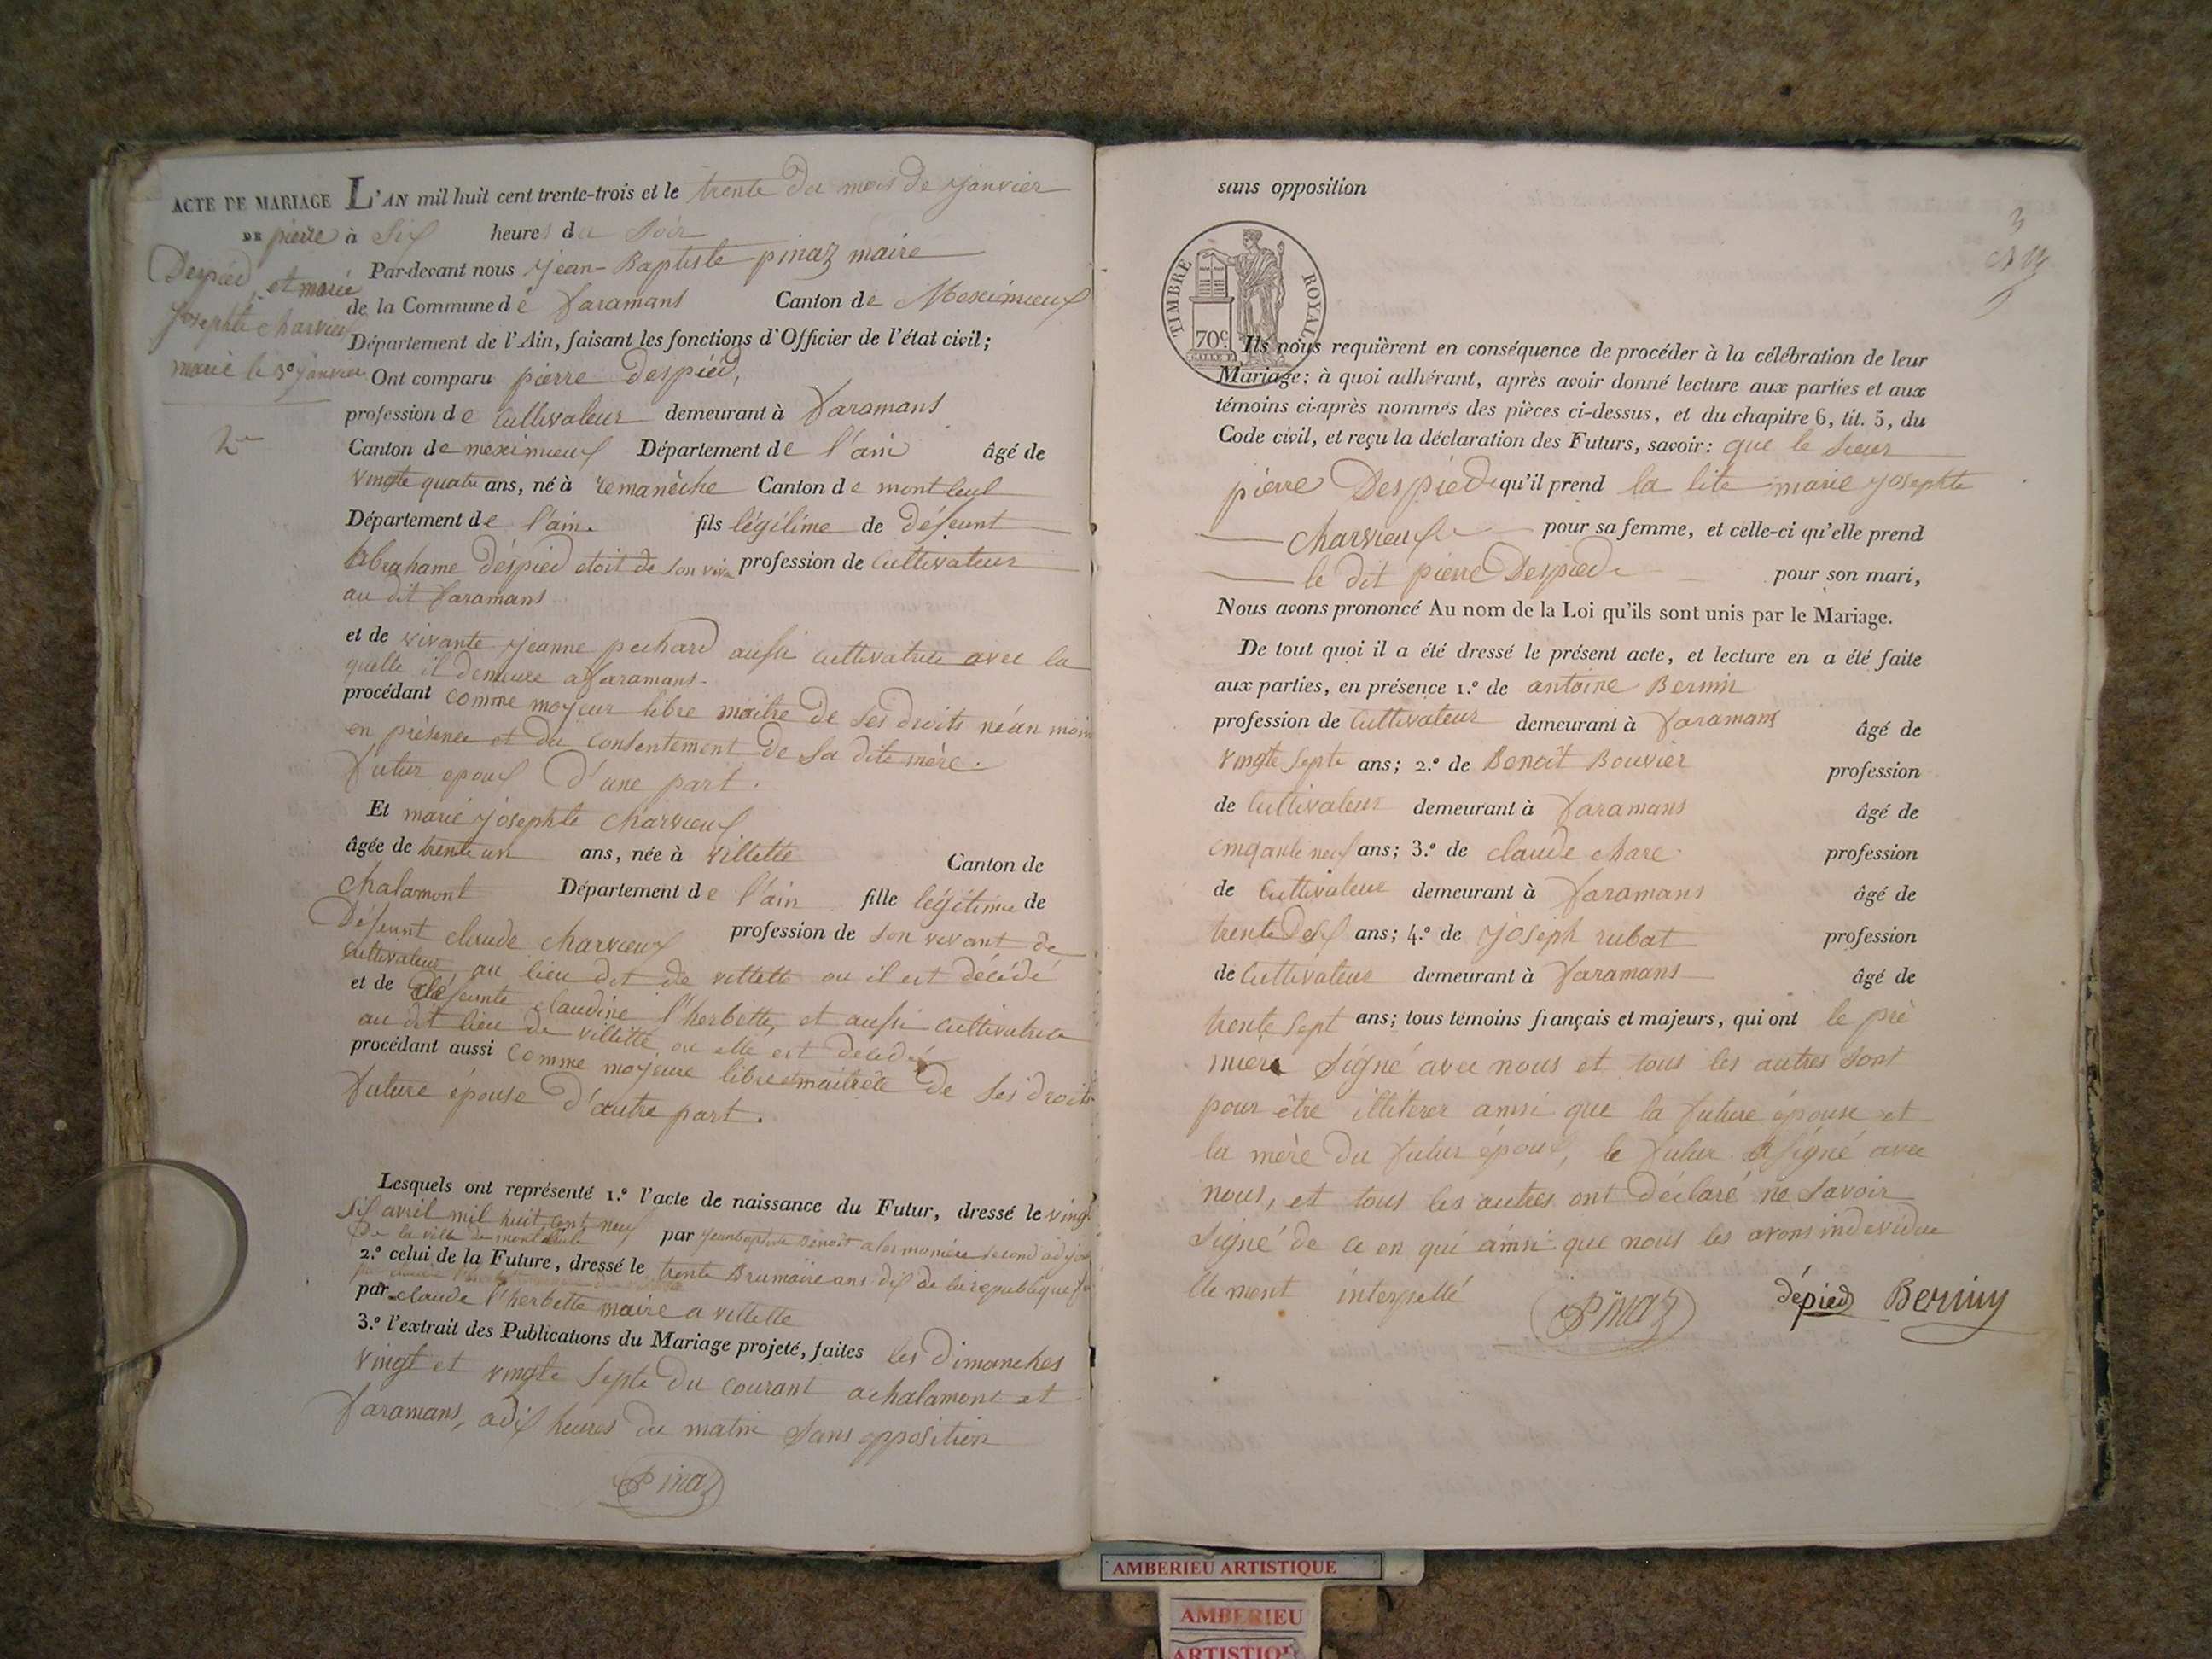 ACTE DE MARIAGE
DE pierre
Despied, et marie
Josephte charvieux
marié le 30 janvier
2e
L'AN mil huit cent trente-trois et le trente du mois de janvier
à six heures du soir
Par-devant nous jean-Baptiste pinaz maire
de la Commune de faramans Canton de Meximieux
Département de l'Ain, faisant les fonctions d'Officier de l'état civil;
Ont comparu pierre despied,
profession de cultivateur demeurant à faramans
Canton de meximieux Département de l'ain âgé de
vingte quatre ans, né à remanèche Canton de montleul
Département de l'ain fils légitime de défeunt
abrahame déspied etoit de son viva profession de cultivateur
au dit faramans
et de vivante jeanne pechard aussi cultivatrice avec la
quelle il demeure a faramans
procédant comme mojeur libre maitre de ses droits néan moin
en présence et du consentement de sa dite mère.
futur epoux d'une part.
Et marie josephte charvieux
âgée de trente un ans, née à villette Canton de
chalamont Département de l'ain fille légitime de
Défeunt claude charvieux profession de son vivant de
cultivateur au lieu dit de villette ou il est décédé
et de defeunte claudine l'herbette, et aussi cultivatrice
au dit lieu de villette ou elle est decedé
procédant aussi comme mojeure libre et maitrèse de ses droits
future épouse d'autre part.
Lesquels ont représenté 1.º l'acte de naissance du Futur, dressé le vingt
six avril mil huit cent neuf par jeanbaptiste Benoit second
De la ville de
2.º celui de la Future, dressé le trente Brumaire ans dix de la republique
par claude l'herbette maire a villette
3.º l'extrait des Publications du Mariage projeté, faites les dimanches
vingt et vingte septe du courant achalamont et
faramans, adix heures du matin sans opposition
Pinaz
sans opposition
3
TIMBRE ROYAL
70c
Ils nous requièrent en conséquence de procéder à la célébration de leur
Mariage: à quoi adhérant, après avoir donné lecture aux parties et aux
témoins ci-après nommés des pièces ci-dessus, et du chapitre 6, tit. 5, du
Code civil, et reçu la déclaration des Futurs, savoir: que le sieur
pierre Despied qu'il prend la dite marie josephte
charvieux pour sa femme, et celle-ci qu'elle prend
le dit pierre Despied pour son mari,
Nous avons prononcé Au nom de la Loi qu'ils sont unis par le Mariage.
De tout quoi il a été dressé le présent acte, et lecture en a été faite
aux parties, en présence 1.º de antoine Bernin
profession de cultivateur demeurant à faramans âgé de
vingte septe ans; 2.º de Benoit Bouvier profession
de cultivateur demeurant à faramans âgé de
cinqante neuf ans; 3.º de claude chare profession
de cultivateur demeurant à faramans âgé de
trente ans; 4.º de joseph rubat profession
de cultivateur demeurant à faramans âgé de
trente sept ans; tous témoins français et majeurs, qui ont le pre
mier signé avec nous et tous les autres sont
pour être illiterer ainsi que la future épouse et
la mère du futur époux, le futur a signé avec
nous, et tous les autres ont déclaré ne savoir
signé de ce en qui ainsi que nous les avons individue
llement interpellé
Pinaz dépied Berniny
AMBERIEU ARTISTIQUE
AMBERIEU
ARTISTIQUE